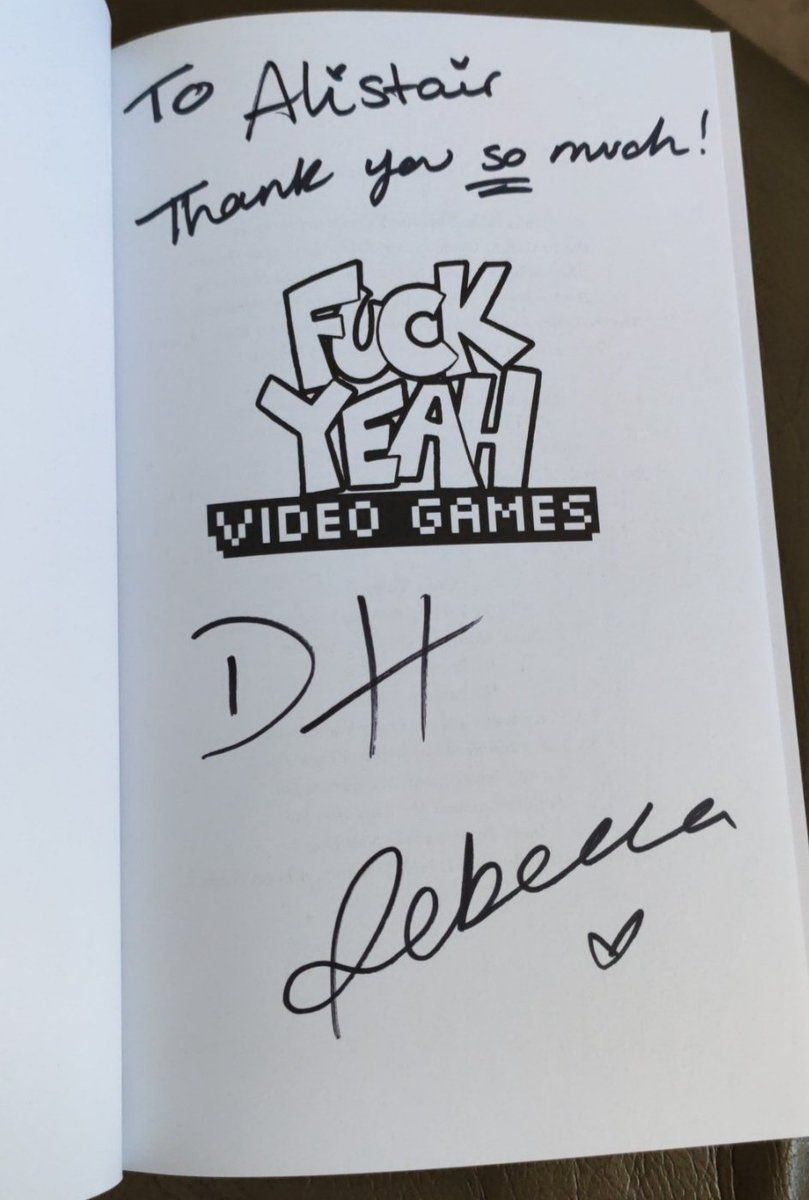 To Alistair
Thank you so much!
FUCK
YEAH
VIDEO GAMES
DH
Rebecca